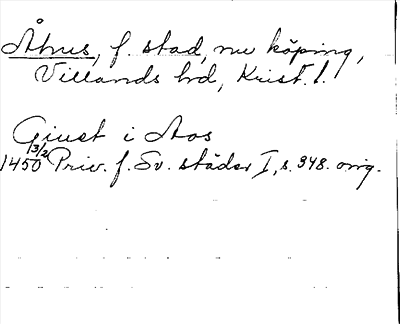 Åhus, f. stad, nu köping,
Villands hd, Krist. l.
Giust i Aos
1450 13/2 Priv. f. Sv. städer I, s. 348. orig.